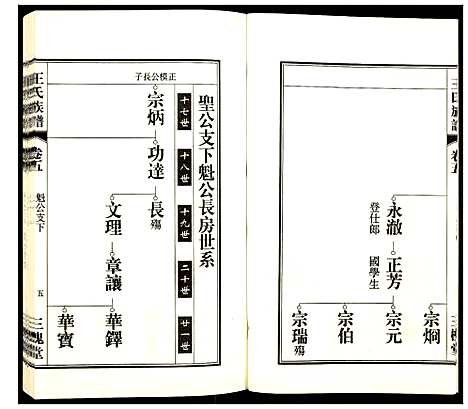 王氏族譜
卷五
三槐堂
永澈
登仕郎
正芳
國學生
宗炯
宗元
宗伯
宗瑞 殤
聖公支下魁公長房世系
十七世
十八世
十九世
二十世
廿一世
正模公長子
宗炳
功達
長殤
文理
章讓
華鐸
華寶
王氏族譜
卷五
魁公支下
五
三槐堂